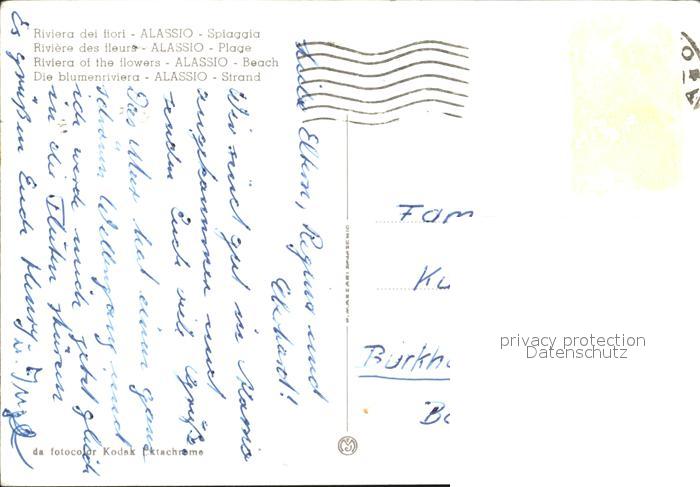 Riviera dei fiori - ALASSIO - Spiaggia
Rivière des fleurs - ALASSIO - Plage
Riviera of the flowers - ALASSIO - Beach
Die blumenriviera - ALASSIO - Strand
Eltern, Regina und
Ekhard!
Wir sind gut in Alassio
angekommen und
senden Euch viele Grüße
Das Meer hat einen ganz
schönen Wellengang und
ich werde mich jetzt gleich
in die Fluten stürzen
Es grüßen Euch Henry u.
Fam
Ku
Burkh
B
privacy protection
Datenschutz
da fotocolor Kodak Ektachrome